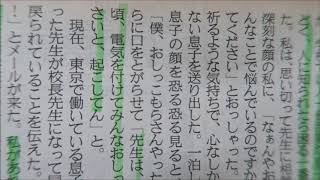 た。私は、思い切って先生に相
深刻な顔の私に、「なぁんやお
んなことで悩んでいるのですか
てください」とおっしゃった。
祈るような気持ちで、心なしか
ない息子を送り出した。一泊し
息子の顔を恐る恐る見ると
「僕、おしっこもらさんやった
らに口をとがらせて「先生は、
頃、電気を付けてみんなおしっ
さいと、起こしてん」と。
現在、東京で働いている息
った先生が校長先生になって
戻られていることを伝えた。
！」とメールが来た。私が